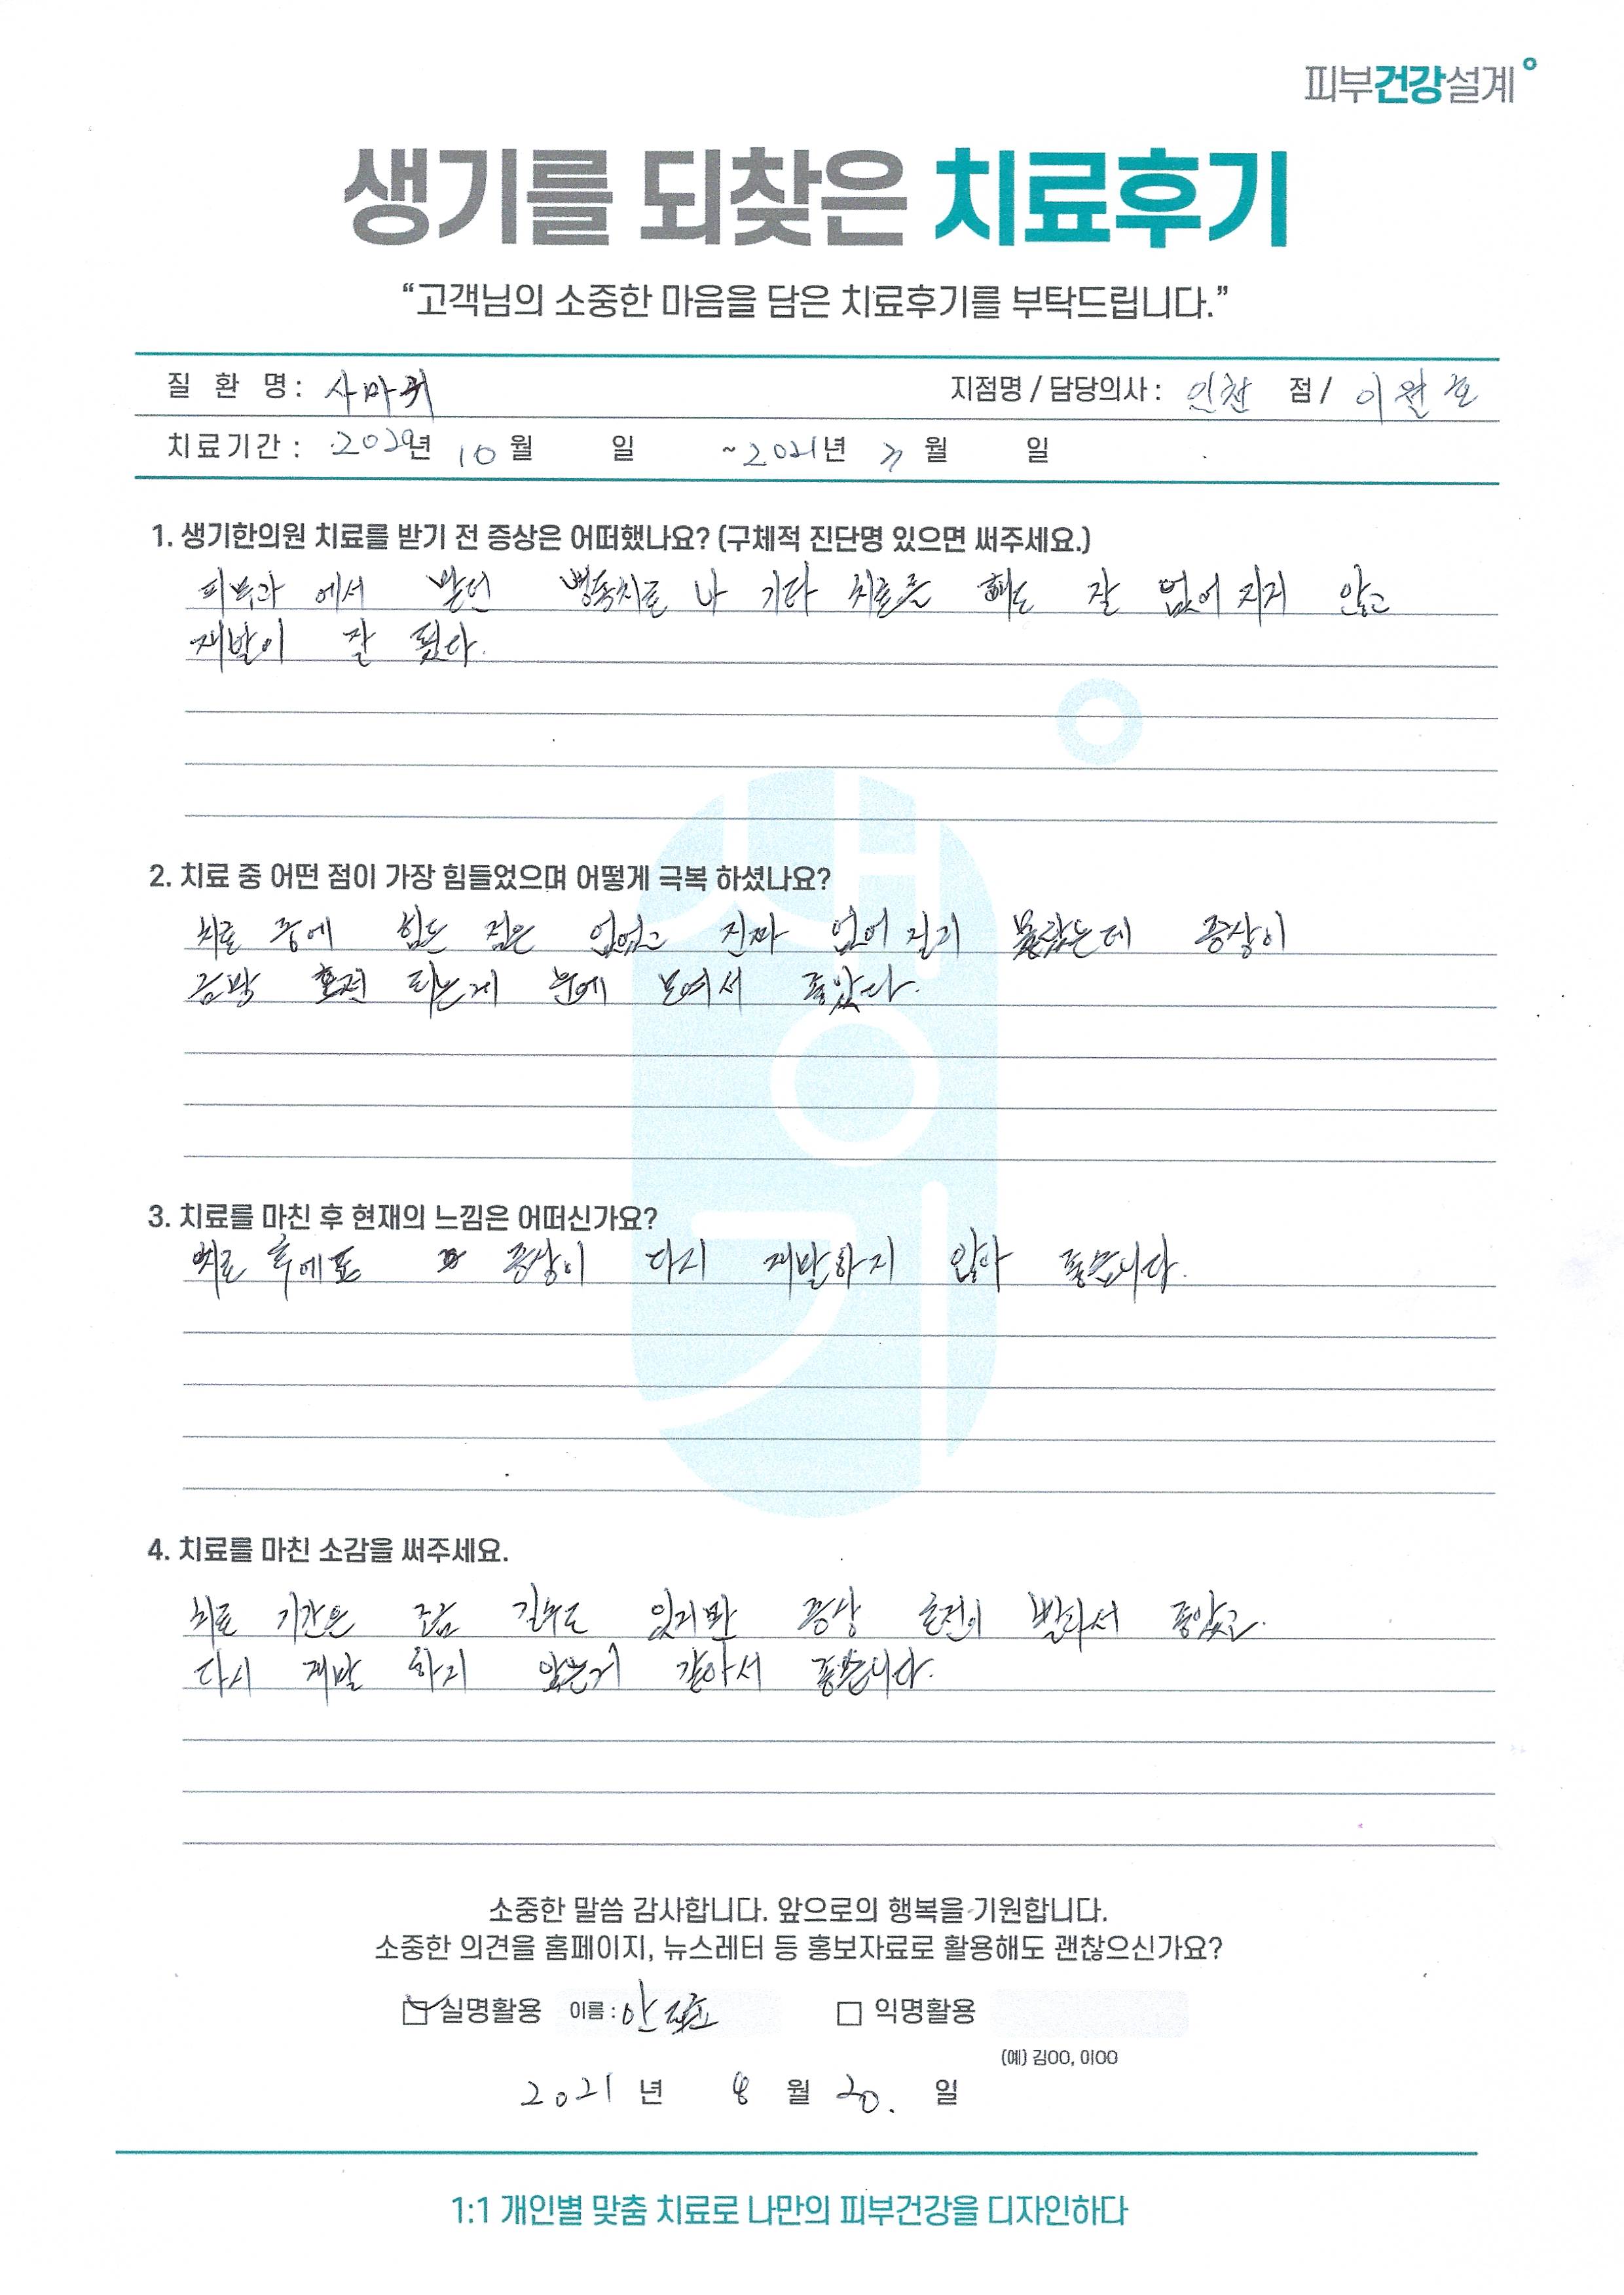 피부건강설계
생기를 되찾은 치료후기
“고객님의 소중한 마음을 담은 치료후기를 부탁드립니다.”
질 환 명 : 사마귀 지점명 / 담당의사 : 인천 점 / 이원호
치료기간 : 2020년 10월 일 ~ 2021년 월 일
1. 생기한의원 치료를 받기 전 증상은 어떠했나요? (구체적 진단명 있으면 써주세요.)
피부과 에서 받던 냉동치료 나 기타 치료를 해도 잘 없어 지지 않고
재발이 잘 됬다.
2. 치료 중 어떤 점이 가장 힘들었으며 어떻게 극복 하셨나요?
치료 중에 힘든 점은 없었고 진짜 없어 질지 몰랐는데 증상이
금방 호전 되는게 눈에 보여서 좋았다.
3. 치료를 마친 후 현재의 느낌은 어떠신가요?
치료 후에도 증상이 다시 재발하지 않아 좋습니다.
4. 치료를 마친 소감을 써주세요.
치료 기간은 조금 길수도 있지만 증상 호전이 빨라서 좋았고.
다시 재발 하지 않는거 같아서 좋습니다.
소중한 말씀 감사합니다. 앞으로의 행복을 기원합니다.
소중한 의견을 홈페이지, 뉴스레터 등 홍보자료로 활용해도 괜찮으신가요?
실명활용 이름 : 안 익명활용
(예) 김OO, 이OO
2021 년 8 월 20. 일
1:1 개인별 맞춤 치료로 나만의 피부건강을 디자인하다
생기